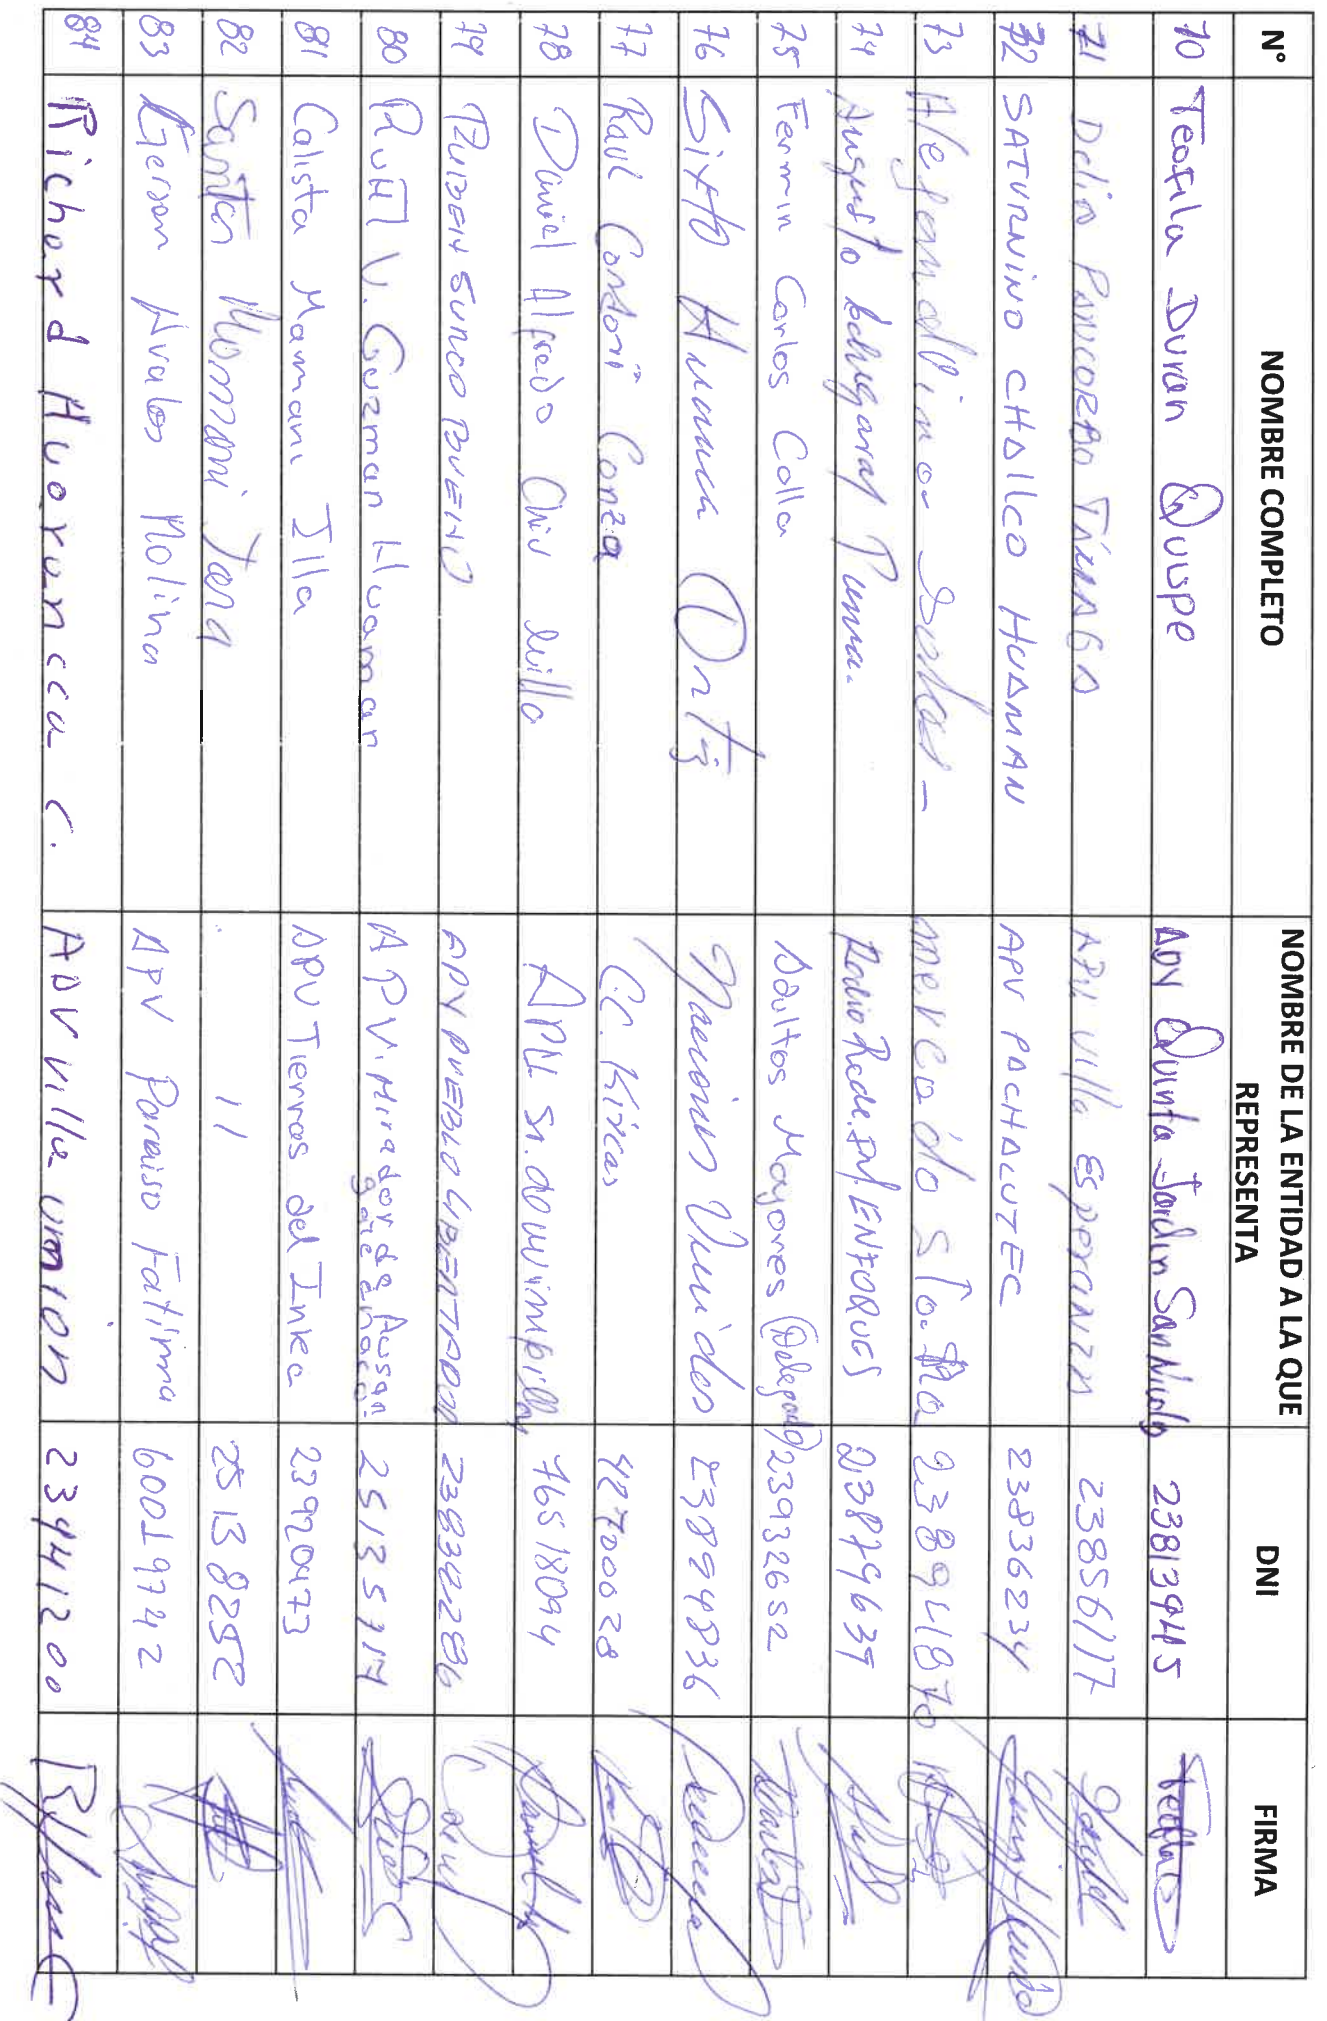 N° NOMBRE COMPLETO NOMBRE DE LA ENTIDAD A LA QUE REPRESENTA DNI FIRMA
70 Teofila Duran Quispe APV Quinta Jardin San Nicolas 23813945
71 Delia Pancorbo Tinago APV. Villa Esperanza 23856117
72 SATURNINO CHAllCO HUAMAN APV PACHACUTEC 23836234
73 Alejandrina Salas - mercado Sto. 238941870
74 Augusto Echegaray Tumu. Radio Rede. Inf ENFOQUES 23879637
75 Fermin Carlos Colla Adultos Mayores (Delegado) 239326S2
76 Sixto Huanca Ortiz Manos Unidos 23894836
77 Raul Condori Conza CC. Kircas 42700028
78 Daniel Alfredo Chi Quilla 76518094
79 RUBEN SUNCO BUENO APV PUEBLO LIBERTADOR 23832286
80 Ruth V. Guzman Huaman APV. Mirador de Ausan 25135714
81 Calista Mamani Illa APV Tierras del Inka 23920473
82 Santos Mamani Jara 11 25138252
83 Gerson Avalos Molina APV Paraiso Fatima 60019742
84 Richard Huaruncca C. APV Villa union 23441200